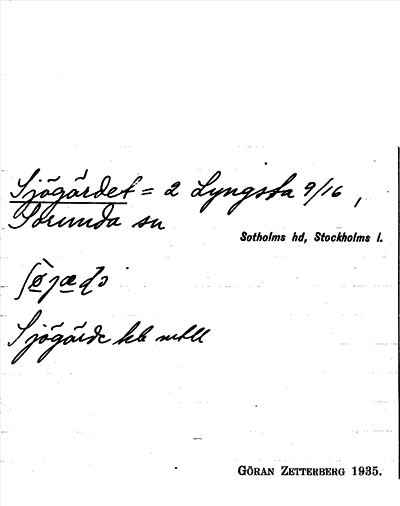 Sjögärdet = 2 Lyngsta 9/16,
Sorunda sn
Sotholms hd, Stockholms l.
Sjögärde kb mtll
GÖRAN ZETTERBERG 1935.